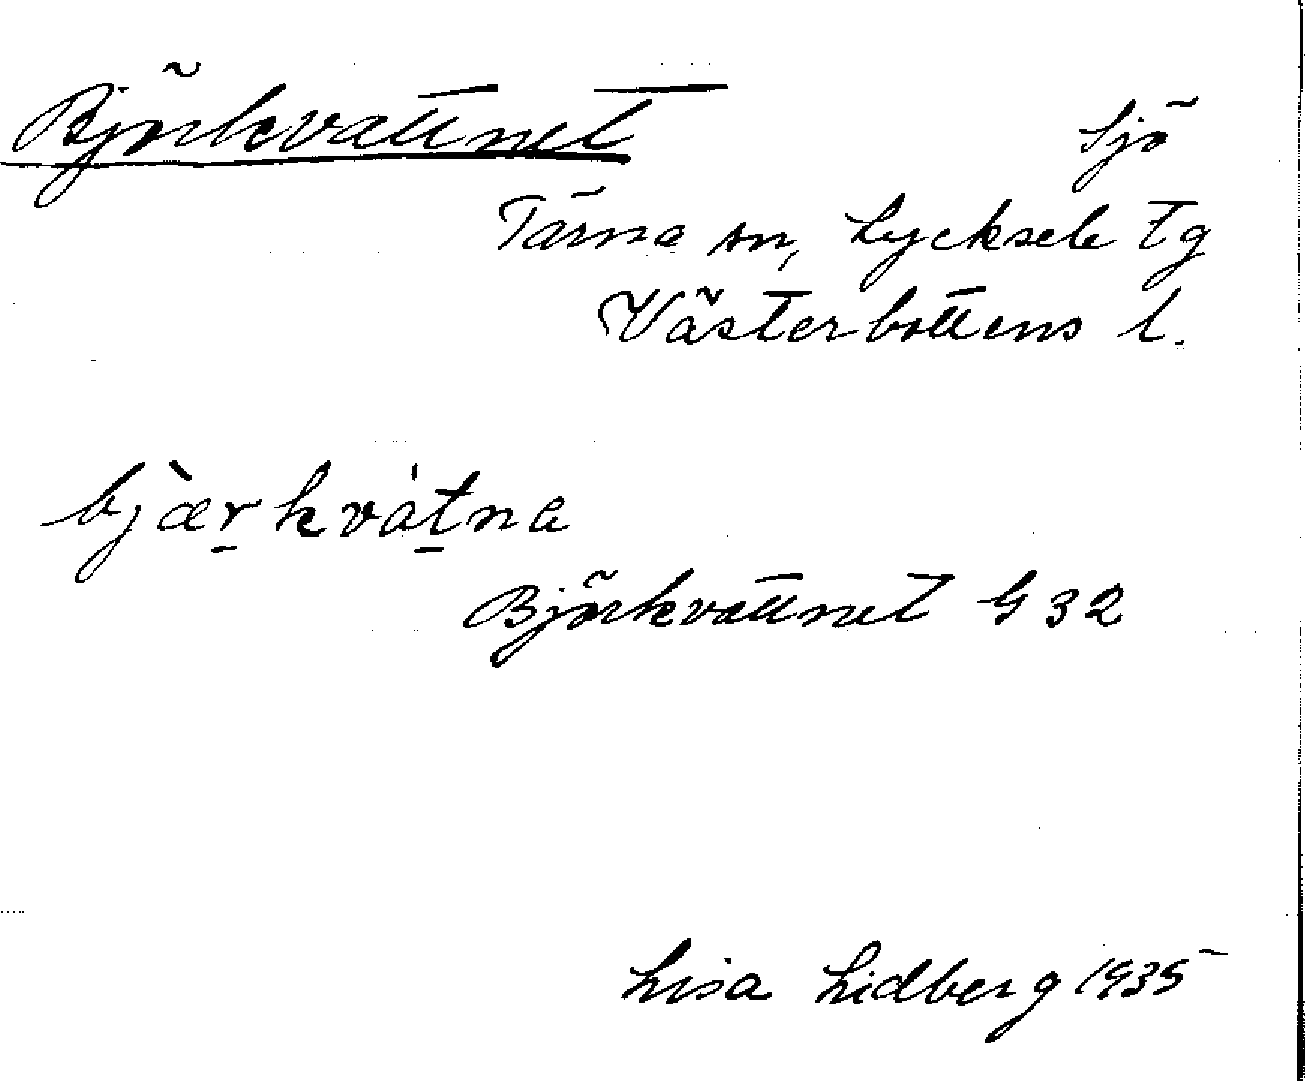 Björkvattnet Sjö
Tärna sn, Lycksele tg
Västerbottens l.
bjæ̀r̠kvát̠na
Björkvattnet G 32
Lisa Lidberg 1935